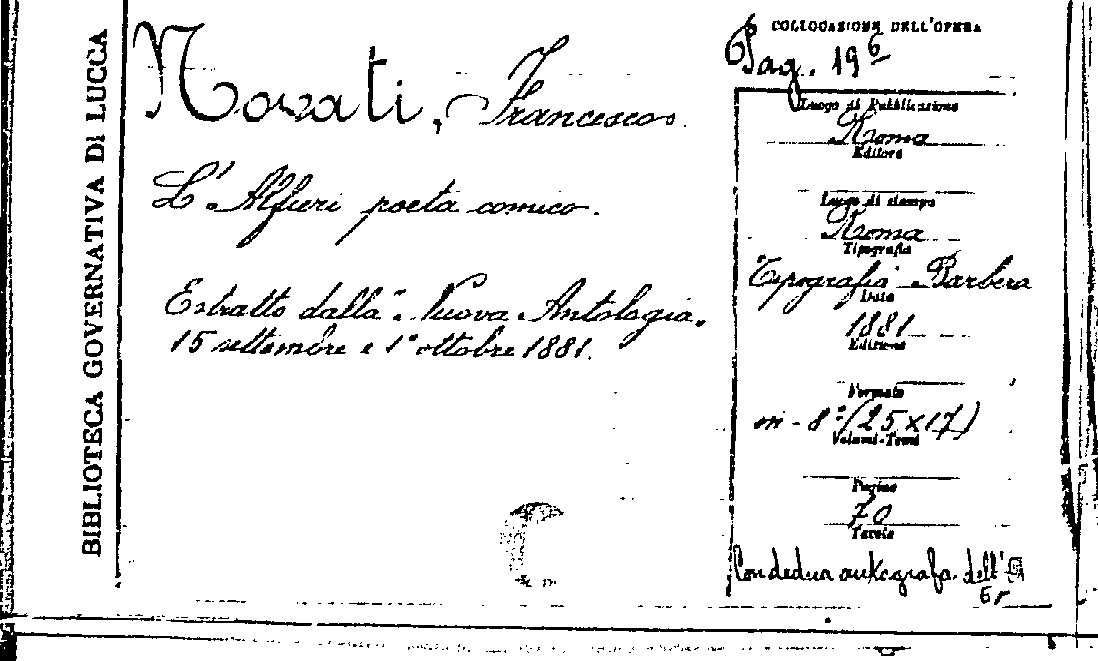 BIBLIOTECA GOVERNATIVA DI LUCCA
Novati, Francesco.
L'Alfieri poeta comico.
Estratto dalla "Nuova Antologia.
15 settembre e 1° ottobre 1881.
COLLOCAZIONE DELL'OPERA
Pag. 19
Luogo di Pubblicazione
Roma
Editore
Luogo di stampa
Roma
Tipografia
Tipografia Barbera
Data
1881
Edizione
Formato
in-8° (25x17)
Volumi-Tomi
Pagine
70
Tavole
Con dedica autografa dell'